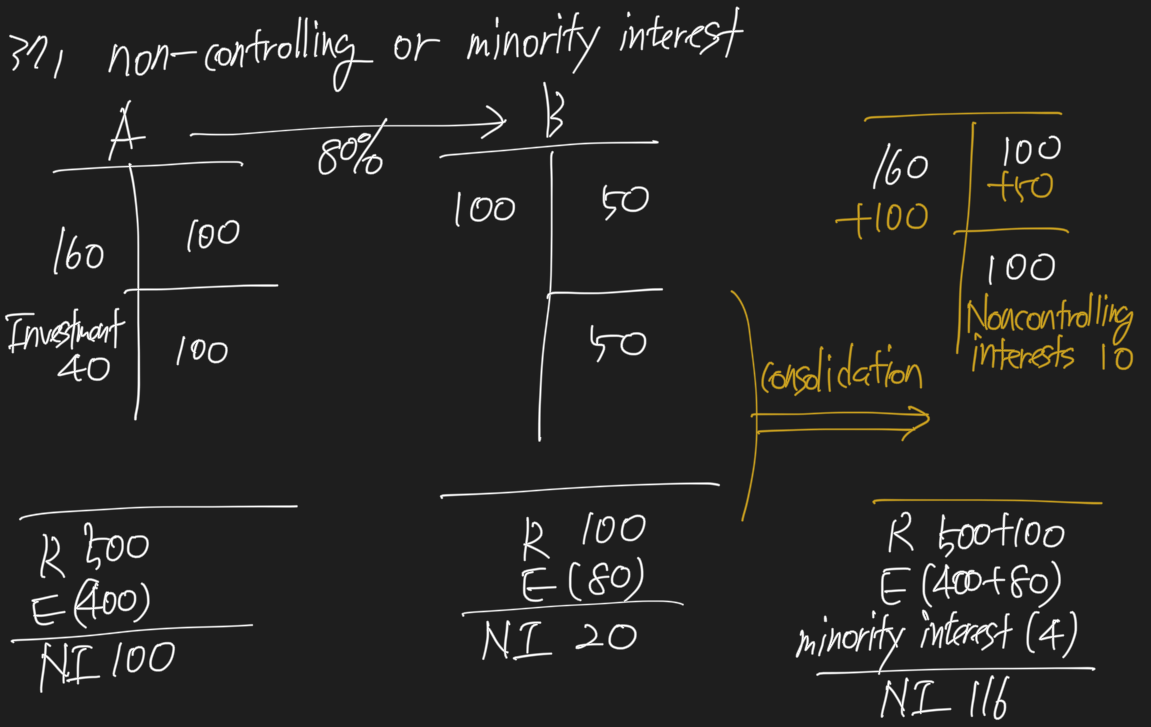 37, non-controlling or minority interest
A
80%
B
160
100
Investment
40
100
100
50
50
160
+100
100
+50
100
Noncontrolling
interests 10
consolidation
R 500
E (400)
NI 100
R 100
E (80)
NI 20
R 500+100
E (400+80)
minority interest (4)
NI 116